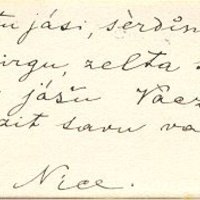 tu jāsi, sērdīn
irgu, zelta
jāšu Vācz
ait savu va
Nice.